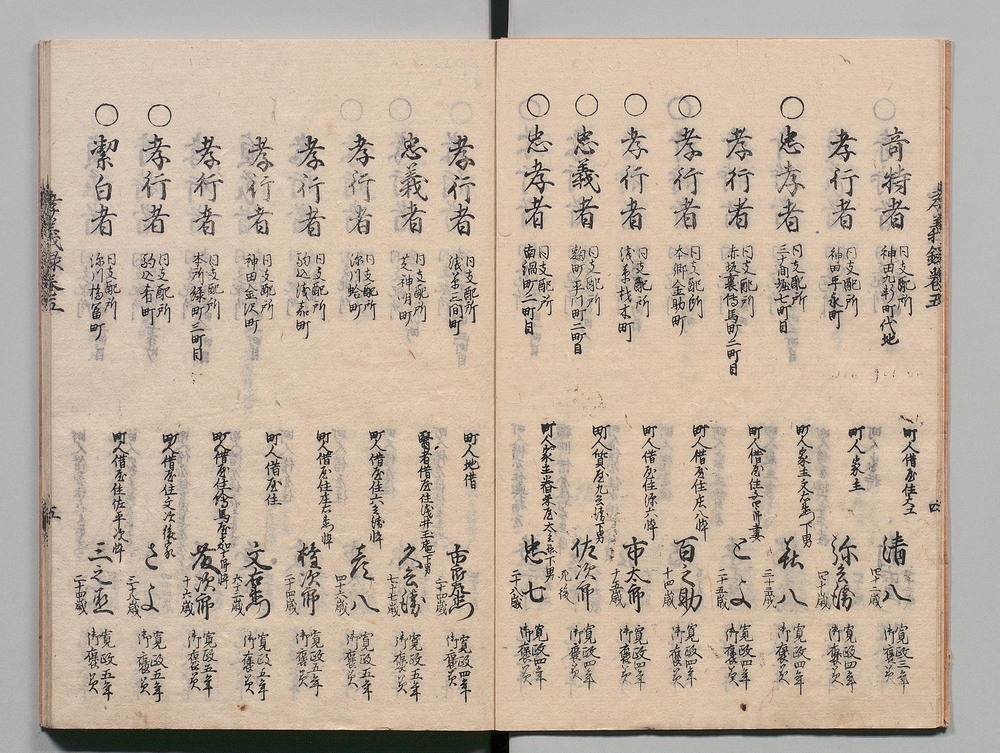 奇特者 同支配所 神田九軒町代地 町人借屋住大工 清八 四十二歳 寛政三年 御褒美
孝行者 同支配所 神田平永町 町人家主 弥兵衛 四十歳 寛政四年 御褒美
○忠孝者 同支配所 三十間堀七町目 町人家主文右衛門下男 喜八 三十三歳 寛政四年 御褒美
孝行者 同支配所 赤坂裏伝馬町二町目 とよ 二十五歳 寛政四年 御褒美
○孝行者 同支配所 本郷金助町 町人借屋住庄八悴 百之助 十四歳 寛政四年 御褒美
○孝行者 同支配所 浅草材木町 町人借屋住源六悴 市太郎 十五歳 寛政四年 御褒美
○忠義者 同支配所 麹町平川町二町目 町人質屋九兵衛下男 佐次郎 死後 寛政四年 御褒美
○忠孝者 同支配所 南鍋町二町目 忠七 二十八歳 寛政四年 御褒美
孝行者 同支配所 浅草三間町 町人地借 三十四歳 寛政五年 御褒美
忠義者 同支配所 芝神明町 医者借屋住浅井玉庵下男 久兵衛 七十七歳 寛政五年 御褒美
孝行者 同支配所 深川蛤町 町人借屋住六兵衛悴 彦八 四十六歳 寛政五年 御褒美
孝行者 同支配所 駒込浅嘉町 町人借屋住 権次郎 二十四歳 寛政五年 御褒美
孝行者 同支配所 神田金沢町 町人借屋住 文右衛門 六十三歳 寛政五年 御褒美
孝行者 同支配所 本所緑町三町目 町人借屋住 十六歳 寛政五年 御褒美
○孝行者 同支配所 駒込肴町 町人借屋住文次後家 さよ 三十六歳 寛政五年 御褒美
○潔白者 同支配所 深川 町人借屋住佐平次悴 三之丞 二十四歳 寛政五年 御褒美